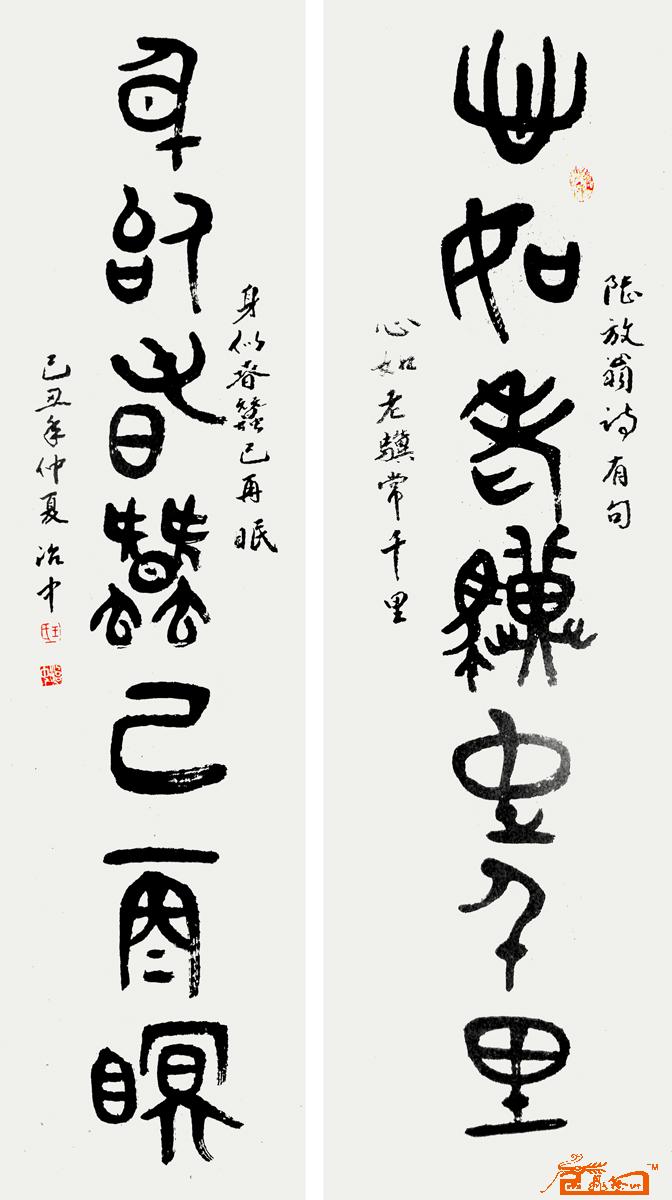 陸放翁詩有句
心如老驥千里
心如老驥常千里
身似春蠶已再眠
身似春蠶已再瞑
己丑年仲夏冶中